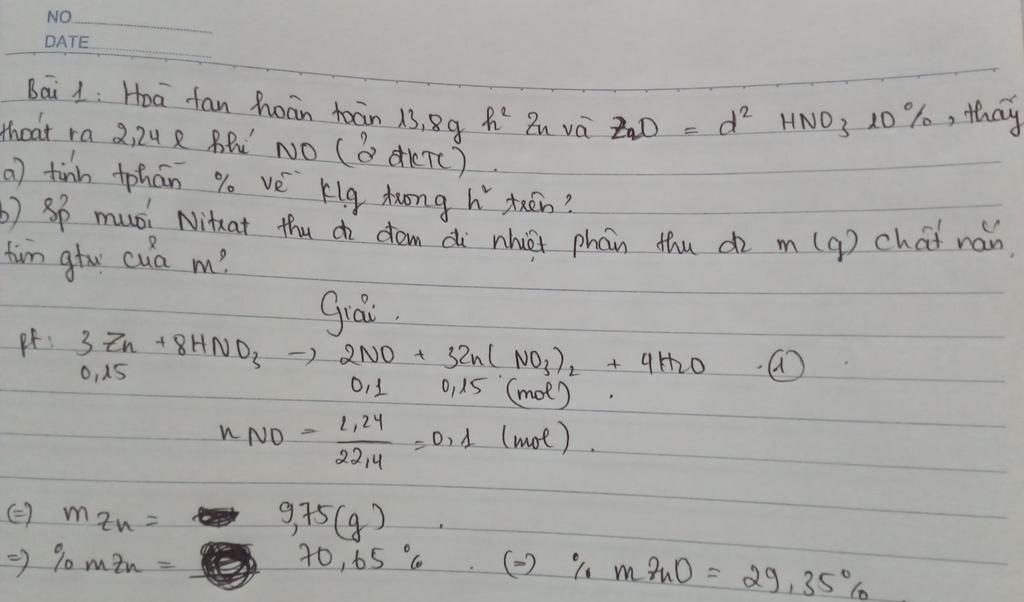 NO
DATE
Bài 1: Hoà tan hoàn toàn 13,8g h² Zn và ZnO = d² HNO₃ 10%, thấy
thoát ra 2,24 l khí NO (ở đktc).
a) tính tphần % về klg trong h² trên?
b) Sp muối Nitrat thu đc đem đi nhiệt phân thu đc m(g) chất rắn.
tìm gtrị của m?
Giải.
pt: 3Zn + 8HNO₃ → 2NO + 3Zn(NO₃)₂ + 4H₂O (1)
0,15 0,1 0,15 (mol).
nNO = 2,24/22,4 = 0,1 (mol).
(=) mZn = 9,75(g).
=) % mZn = 70,65 %. (=) % mZnO = 29,35%